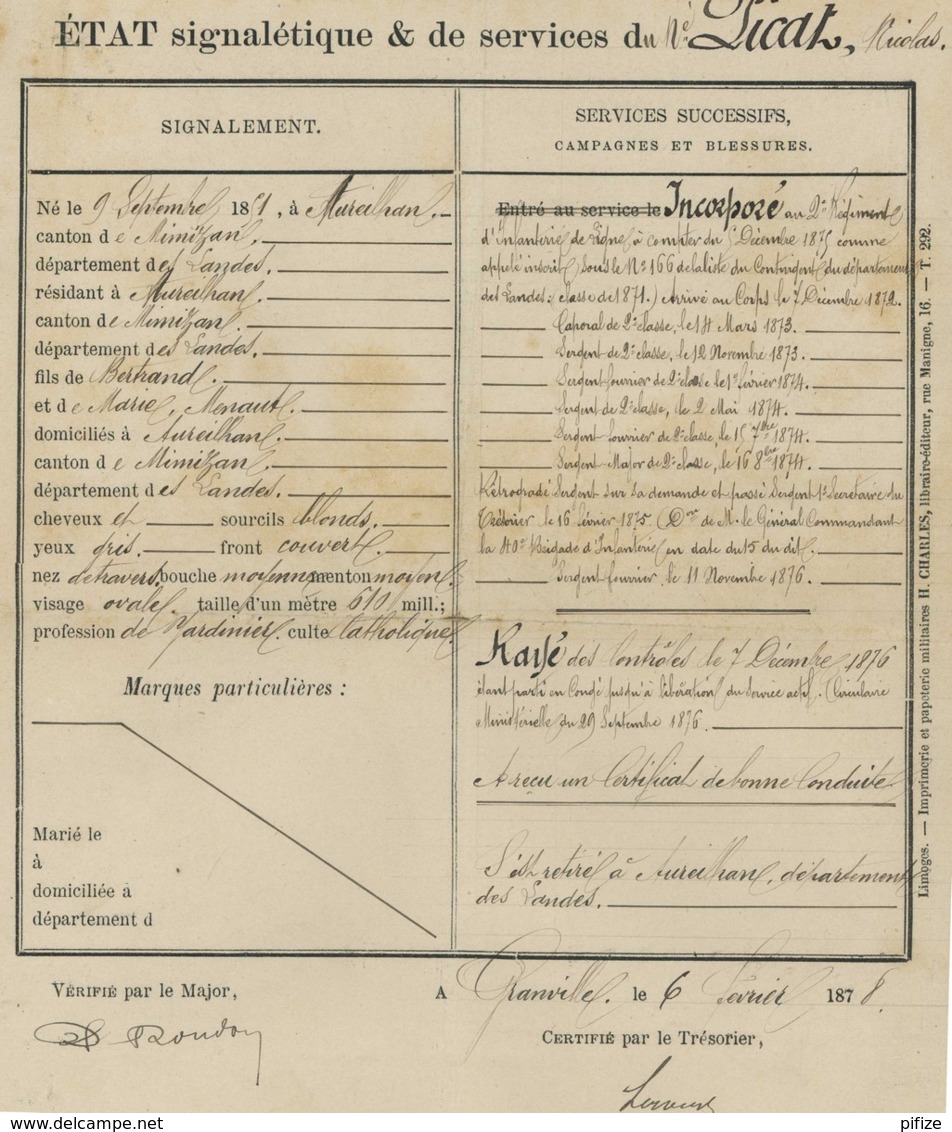 ÉTAT signalétique & de services du Né Picat, Nicolas.
SIGNALEMENT.
Né le 9 Septembre 1851, à Aureilhan.
canton de Mimizan.
département des Landes.
résidant à Aureilhan.
canton de Mimizan.
département des Landes.
fils de Bertrand.
et de Marie, Menaut.
domiciliés à Aureilhan.
canton de Mimizan.
département des Landes.
cheveux et sourcils blonds.
yeux gris. front couvert.
nez de travers. bouche moyenne menton moyen.
visage ovale. taille d'un mètre 610 mill.;
profession de Jardinier. culte Catholique.
Marques particulières :
Marié le
à
domiciliée à
département d
SERVICES SUCCESSIFS,
CAMPAGNES ET BLESSURES.
Entré au service le Incorporé au 2e Régiment
d'Infanterie de Ligne à compter du Décembre 187 comme
appelé inscrit sous le No 166 de la liste du Contingent du département
des Landes. (classe de 1871.) Arrivé au Corps le 7 Décembre 1872.
Caporal de 2e classe, le 14 Mars 1873.
Sergent de 2e classe, le 12 Novembre 1873.
Sergent fourrier de 2e classe le 1er février 1874.
Sergent de 2e classe, le 2 Mai 1874.
Sergent fourrier de 2e classe, le 15 7bre 1874.
Sergent Major de 2e classe, le 16 8bre 1874.
Rétrogradé Sergent sur sa demande et passé Sergent 1er Secrétaire du
Trésorier le 16 février 1875 (Don de M. le Général Commandant
la 40e Brigade d'Infanterie en date du 15 du dit.
Sergent fourrier, le 11 Novembre 1876.
Rayé des Contrôles le 7 Décembre 1876
étant parti en Congé jusqu'à libération du Service actif. (Circulaire
Ministérielle du 29 Septembre 1876.
A reçu un Certificat de bonne Conduite
S'est retiré à Aureilhan, département
des Landes.
VÉRIFIÉ par le Major,
A Granville. le 6 février 1878.
CERTIFIÉ par le Trésorier,
Limoges. — Imprimerie et papeterie militaires H. CHARLES, libraire-éditeur, rue Manigne, 16. — T. 292.
pifize